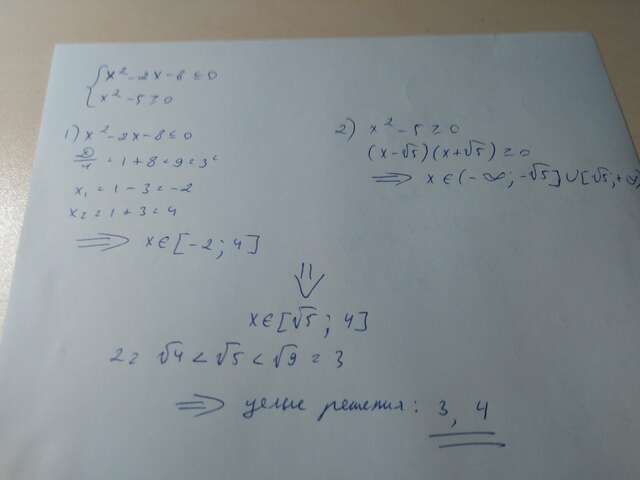 { x² - 2x - 8 ≤ 0
x² - 5 ≥ 0
1) x² - 2x - 8 ≤ 0
D/4 = 1 + 8 = 9 = 3²
x₁ = 1 - 3 = -2
x₂ = 1 + 3 = 4
⇒ x ∈ [-2; 4]
2) x² - 5 ≥ 0
(x - √5)(x + √5) ≥ 0
⇒ x ∈ (-∞; -√5] ∪ [√5; +∞)
⇓
x ∈ [√5; 4]
2 = √4 < √5 < √9 = 3
⇒ целые решения: 3, 4